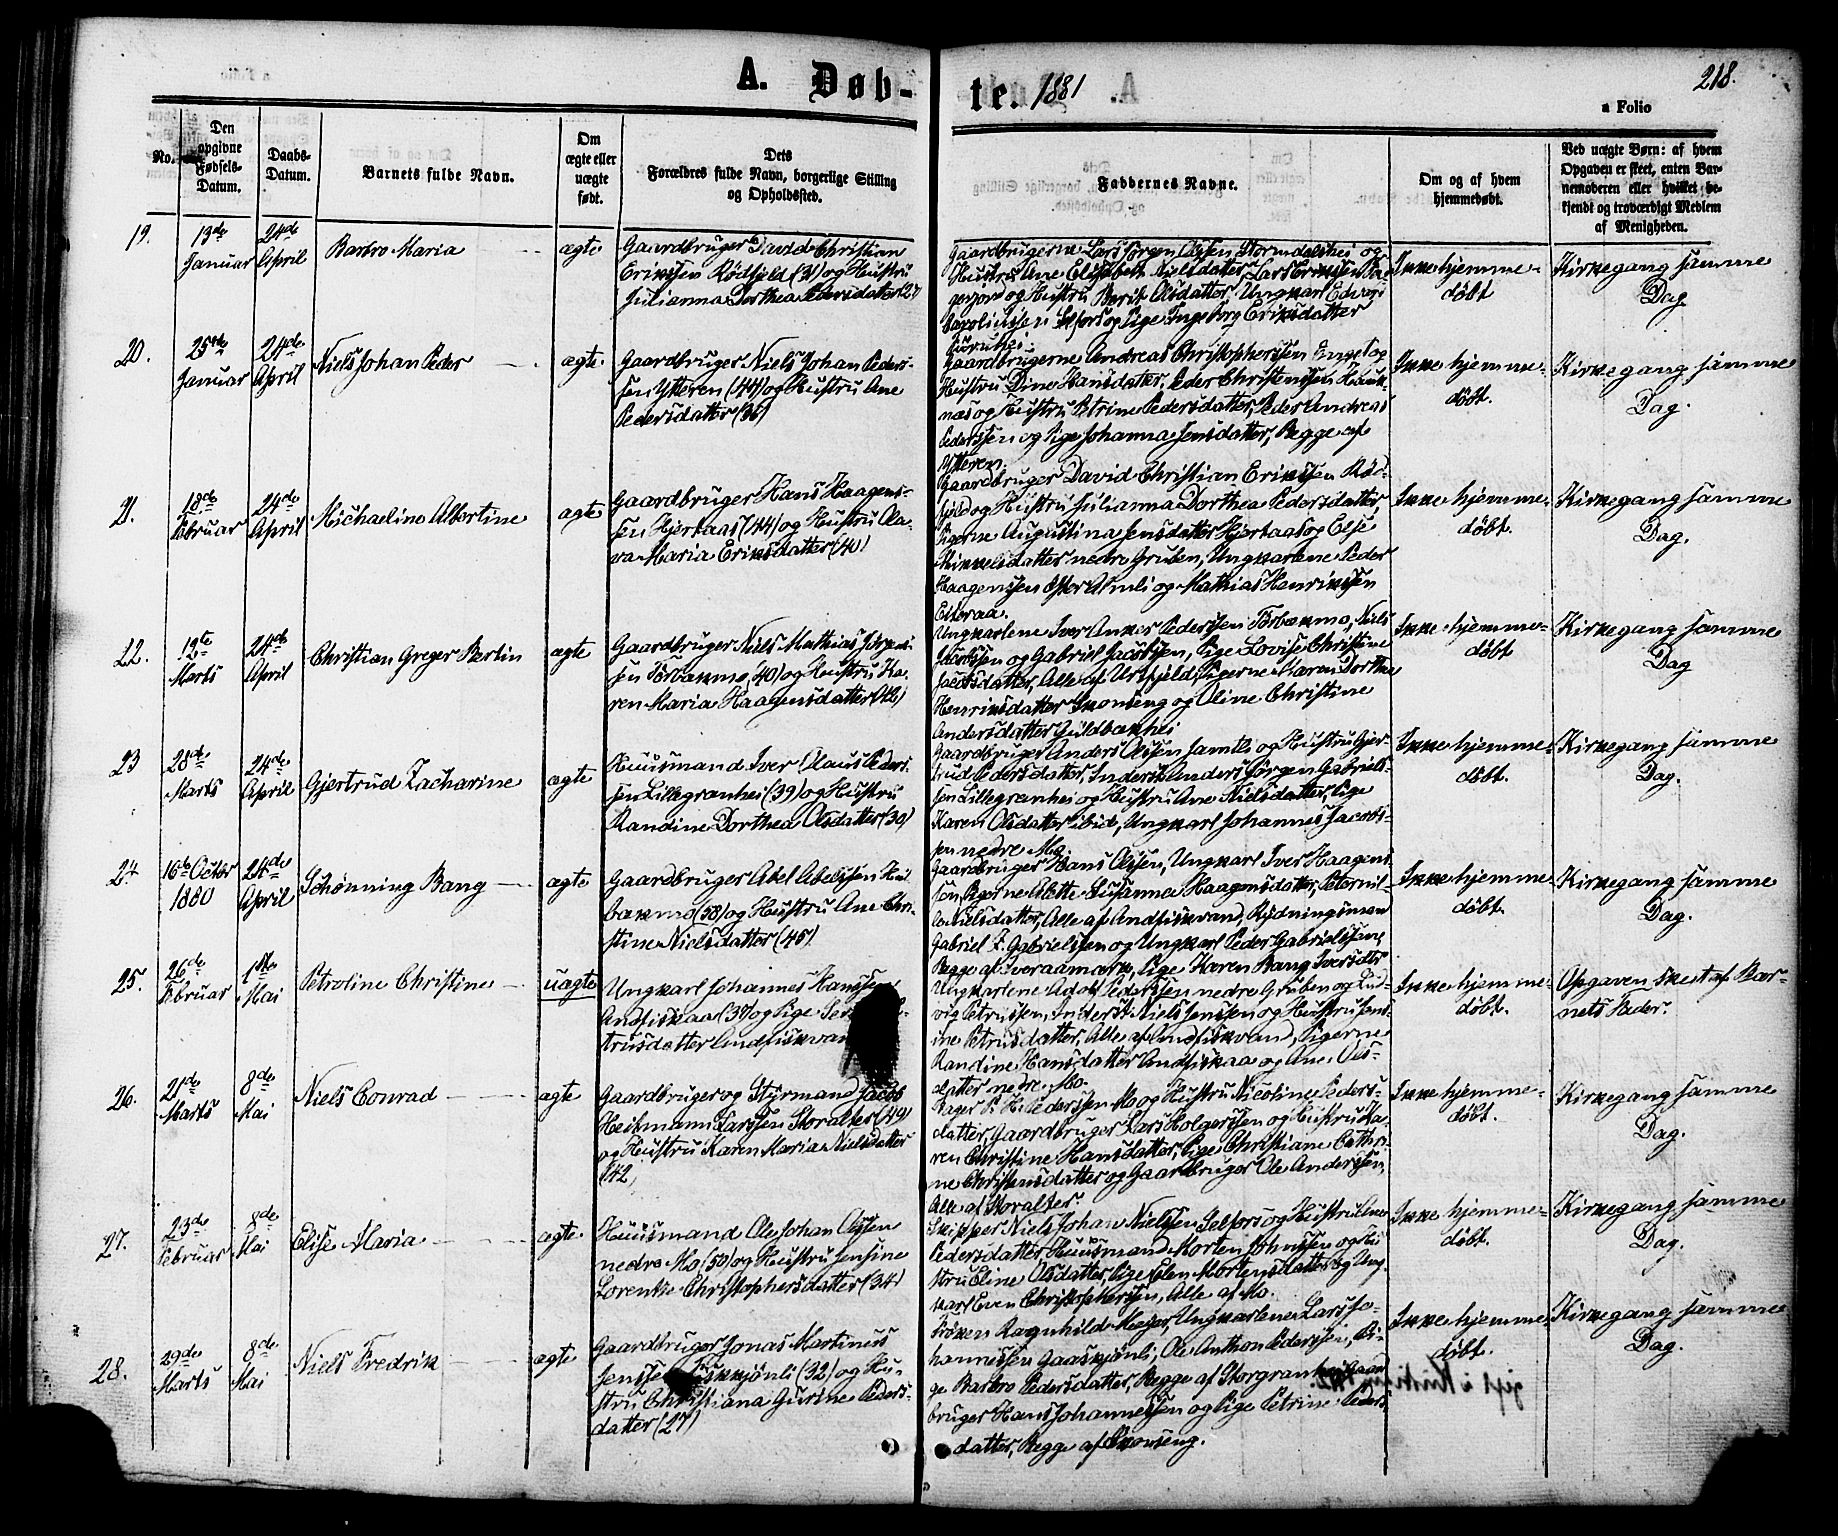 A. Døb-
te. 1881
218.
a Folio
No.
Den
opgivne
Fødsels-
Datum.
Daabs-
Datum.
Barnets fulde Navn.
Om
ægte eller
uægte
født.
Dets
Forældres fulde Navn, borgerlige Stilling
og Opholdssted.
Faddernes Navne.
Om og af hvem
hjemmedøbt.
Ved uægte Børn: af hvem
Opgaven er skeet, enten Bar-
nemoderen eller hvilket be-
kjendt og troværdigt Medlem
af Menigheden.
19.
13de
Januar
24de
April
Barbro Maria
ægte
Gaardbruger David Christian
Eriksen Rödfjeld (31) og Hustru
Julianna Dorthea Pedersdatter (27)
Gaardbrugerne Lars Jørgen Olsen Stormdalshei og
Hustru Ane Elisabeth Nielsdatter, Lars Eriksen
og Hustru Berit Olsdatter, Ungkarl Edvard
Karolinssen Selfors og Pige Ingeborg Eriksdatter
Ikke hjemme-
døbt
Kirkegang samme
Dag
20.
25de
Januar
24de
April
Niels Johan Peder
ægte
Gaardbruger Niels Johan Peders-
sen Ytteren (44) og Hustru Ane
Pedersdatter (36)
Gaardbrugerne Andreas Christophersen Enget og
Hustru Dine Hansdatter, Peder Christensen Hauk-
næs og Hustru Petrine Pedersdatter, Peder Andreas
Pederssen og Pige Johanna Jensdatter, Begge af
Ytteren.
Ikke hjemme-
døbt.
Kirkegang samme
Dag.
21.
18de
Februar
24de
April
Michaeline Albertine
ægte
Gaardbruger Hans Haagens-
sen Hjertaas (44) og Hustru Ola-
va Maria Eriksdatter (40)
Gaardbruger David Christian Eriksen Röd-
fjeld og Hustru Julianna Dorthea Pedersdatter,
Pigerne Augustina Jensdatter Hjertaas og Else
Mikkelsdatter nedre Gruben, Ungkarlene Peder
Haagenssen Øster Almli og Mathias Henriksen
Etteraa.
Ikke hjemme-
døbt.
Kirkegang samme
Dag.
22.
12te
Marts
24de
April
Christian Greger Berlin
ægte
Gaardbruger Niels Mathias Jörgens-
sen Törbakmo (40) og Hustru Ka-
ren Maria Haagensdatter (42)
Ungkarlene Iver Anker Pederssen Törbakmo, Niels
Jacobssen og Gabriel Jacobssen, Pige Lovise Christine
Jacobsdatter, Alle af Urtfjeld, Pigerne Karen Dorthea
Henriksdatter Skonseng og Oline Christine
Andersdatter Guldbakhei
Ikke hjemme-
døbt
Kirkegang samme
Dag
23
28de
Marts
24de
April
Gjertrud Zacharine
ægte
Huusmand Iver Olaus Peders-
sen Lillegranhei (39) og Hustru
Randine Dorthea Olsdatter (30)
Gaardbruger Anders Olssen Jamtli og Hustru Gjer-
trud Pedersdatter, Inderst Anders Jörgen Gabriels-
sen Lillegranhei og Hustru Ane Nielsdatter, Pige
Karen Olsdatter ibid, Ungkarl Johannes Jacobs-
sen nedre Mo.
Ikke hjemme-
døbt.
Kirkegang samme
Dag.
24
16de Octbr
1880
24de
April
Schønning Bang
ægte
Gaardbruger Abel Abelssen
bakmo (38) og Hustru Ane Chri-
stine Nielsdatter (45)
Gaardbruger Hans Olssen, Ungkarl Iver Haagens-
sen, Pigerne Alette Susanna Haagensdatter, Peternil-
le Nielsdatter, Alle af Andfiskvand, Rydningsmand
Gabriel F. Gabrielssen og Ungkarl Peder Gabrielssen,
Begge af Tveraamark, Pige Karen Bang Iversdtr
Ikke hjemme-
døbt.
Kirkegang samme
Dag.
25.
26de
Februar
1ste
Mai
Petroline Christine
uægte
Ungkarl Johannes Hanssen
Andfiskaa (37) og Pige
trusdatter Andfiskvand
Ungkarlene Adolf Pederssen nedre Gruben og Lud-
vig Petrussen, Inderst Niels Jenssen og Hustru Jens-
ine Petrusdatter, Alle af Andfiskvand, Pigerne
Randine Hansdatter Andfiskaa og Ane Ols-
datter nedre Mo.
Ikke hjemme-
døbt.
Opgaven skeet af Bar-
nets Fader.
26.
21de
Marts
8de
Mai
Niels Conrad
ægte
Gaardbruger og Styrmand Jacob
Heitmann Larssen Storalter (49)
og Hustru Karen Maria Nielsdatter
(42)
Bager P. H. Pederssen Mo og Hustru Nicoline Peders-
datter, Gaardbruger Lars Holgerssen og Hustru Ka-
ren Christine Hansdatter, Pige Christiane Cathri-
ne Christensdatter og Gaardbruger Ole Anderssen,
Alle af Storalter.
Ikke hjemme-
døbt.
Kirkegang samme
Dag.
27.
23de
Februar
8de
Mai
Elise Maria
ægte
Huusmand Ole Johan Olssen
nedre Mo (50) og Hustru Jensine
Lorentse Christophersdatter (34)
Skipper Niels Johan Nielssen Selfors og Hustru Ane
Pedersdatter, Huusmand Morten Johnssen og Hu-
stru Eline Olsdatter, Pige Elen Mortensdatter og Ung-
karl Even Christophersen, Alle af Mo.
Ikke hjemme-
døbt.
Kirkegang samme
Dag.
28.
29de
Marts
8de
Mai
Niels Fredrik
ægte
Gaardbruger Jonas Martinus
Jenssen Fiskkjönli (32) og Hu-
stru Christiana Gurine Peders-
datter (27)
Fröken Ragnhild Meyer, Ungkarlene Lars Jo-
hannessen Gaaskjönli, Ole Anthon Pederssen, Pi-
ge Barbro Pedersdatter, Begge af Storgranhei, Gaard-
bruger Hans Johannessen og Pige Petrine Peders-
datter, Begge af Skonseng.
Ikke hjemme-
døbt.
Kirkegang samme
Dag.